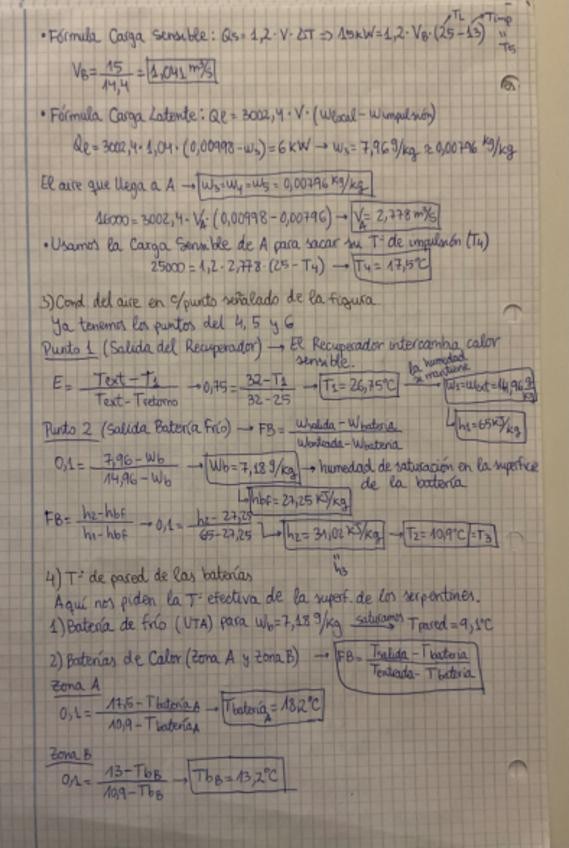 • Fórmula Carga Sensible: Qs = 1,2 · V · ΔT ⇒ 15kW = 1,2 · VB · (25 - 13)
TL Timp
" T5
VB = 15/14,4 = 1,041 m³/s
• Fórmula Carga Latente: Ql = 3002,4 · V · (Wlocal - Wimpulsión)
Ql = 3002,4 · 1,04 · (0,00998 - w5) = 6 kW → w5 = 7,96 g/kg ≈ 0,00796 kg/kg
El aire que llega a A → w3 = w4 = w5 = 0,00796 kg/kg
16000 = 3002,4 · VA · (0,00998 - 0,00796) → VA = 2,778 m³/s
• Usamos la Carga Sensible de A para sacar su Tª de impulsión (T4)
25000 = 1,2 · 2,778 · (25 - T4) → T4 = 17,5°C
3) Cond del aire en c/punto señalado de la figura
Ya tenemos los puntos del 4, 5 y 6
Punto 1 (Salida del Recuperador) → El Recuperador intercambia calor
sensible.
E = (Text - T1)/(Text - Tretorno) → 0,75 = (32 - T1)/(32 - 25) → T1 = 26,75°C la humedad se mantiene → w1 = wext = 14,96 g/kg
↳ h1 = 65 kJ/kg
Punto 2 (Salida Batería frío) → FB = (Wsalida - Wbateria)/(Wentrada - Wbateria)
0,1 = (7,96 - Wb)/(14,96 - Wb) → Wb = 7,18 g/kg → humedad de saturación en la superficie
de la batería
↳ hbf = 27,25 kJ/kg
FB = (h2 - hbf)/(h1 - hbf) → 0,1 = (h2 - 27,25)/(65 - 27,25) ↳ h2 = 31,02 kJ/kg → T2 = 10,9°C = T3
" h3
4) Tª de pared de las baterías
Aquí nos piden la Tª efectiva de la superf. de los serpentines.
1) Batería de frío (UTA) para Wb = 7,18 g/kg saturamos → Tpared = 9,1°C
2) Baterías de Calor (Zona A y Zona B) → FB = (Tsalida - Tbateria)/(Tentrada - Tbateria)
Zona A
0,1 = (17,5 - Tbateria A)/(10,9 - Tbateria A) → Tbateria A = 18,2°C
Zona B
0,1 = (13 - TbB)/(10,9 - TbB) → TbB = 13,2°C